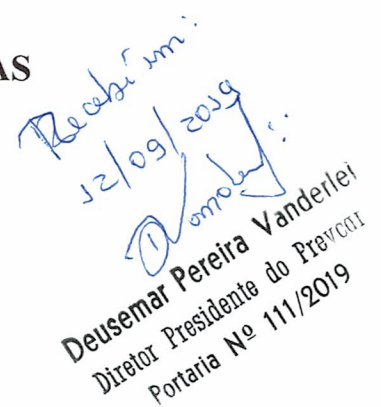 AS
Recebi em:
12/09/2019
Deusemar Pereira Vanderlei
Diretor Presidente do Prevcar
Portaria Nº 111/2019